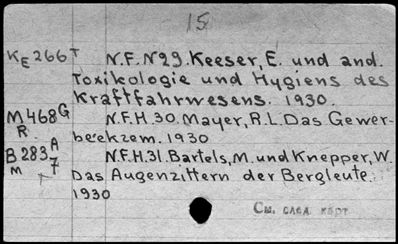 15
KE266T N.F.N29. Keeser, E. und and.
Toxikologie und Hygiens des
Kraftfahrwesens. 1930.
M468G N.F.H 30. Mayer, R.L. Das Gewer-
R. beekzem. 1930
B283A/7 N.F.H.31. Bartels, M. und Knepper, W.
M Das Augenzittern der Bergleute.
1930
См. след карт